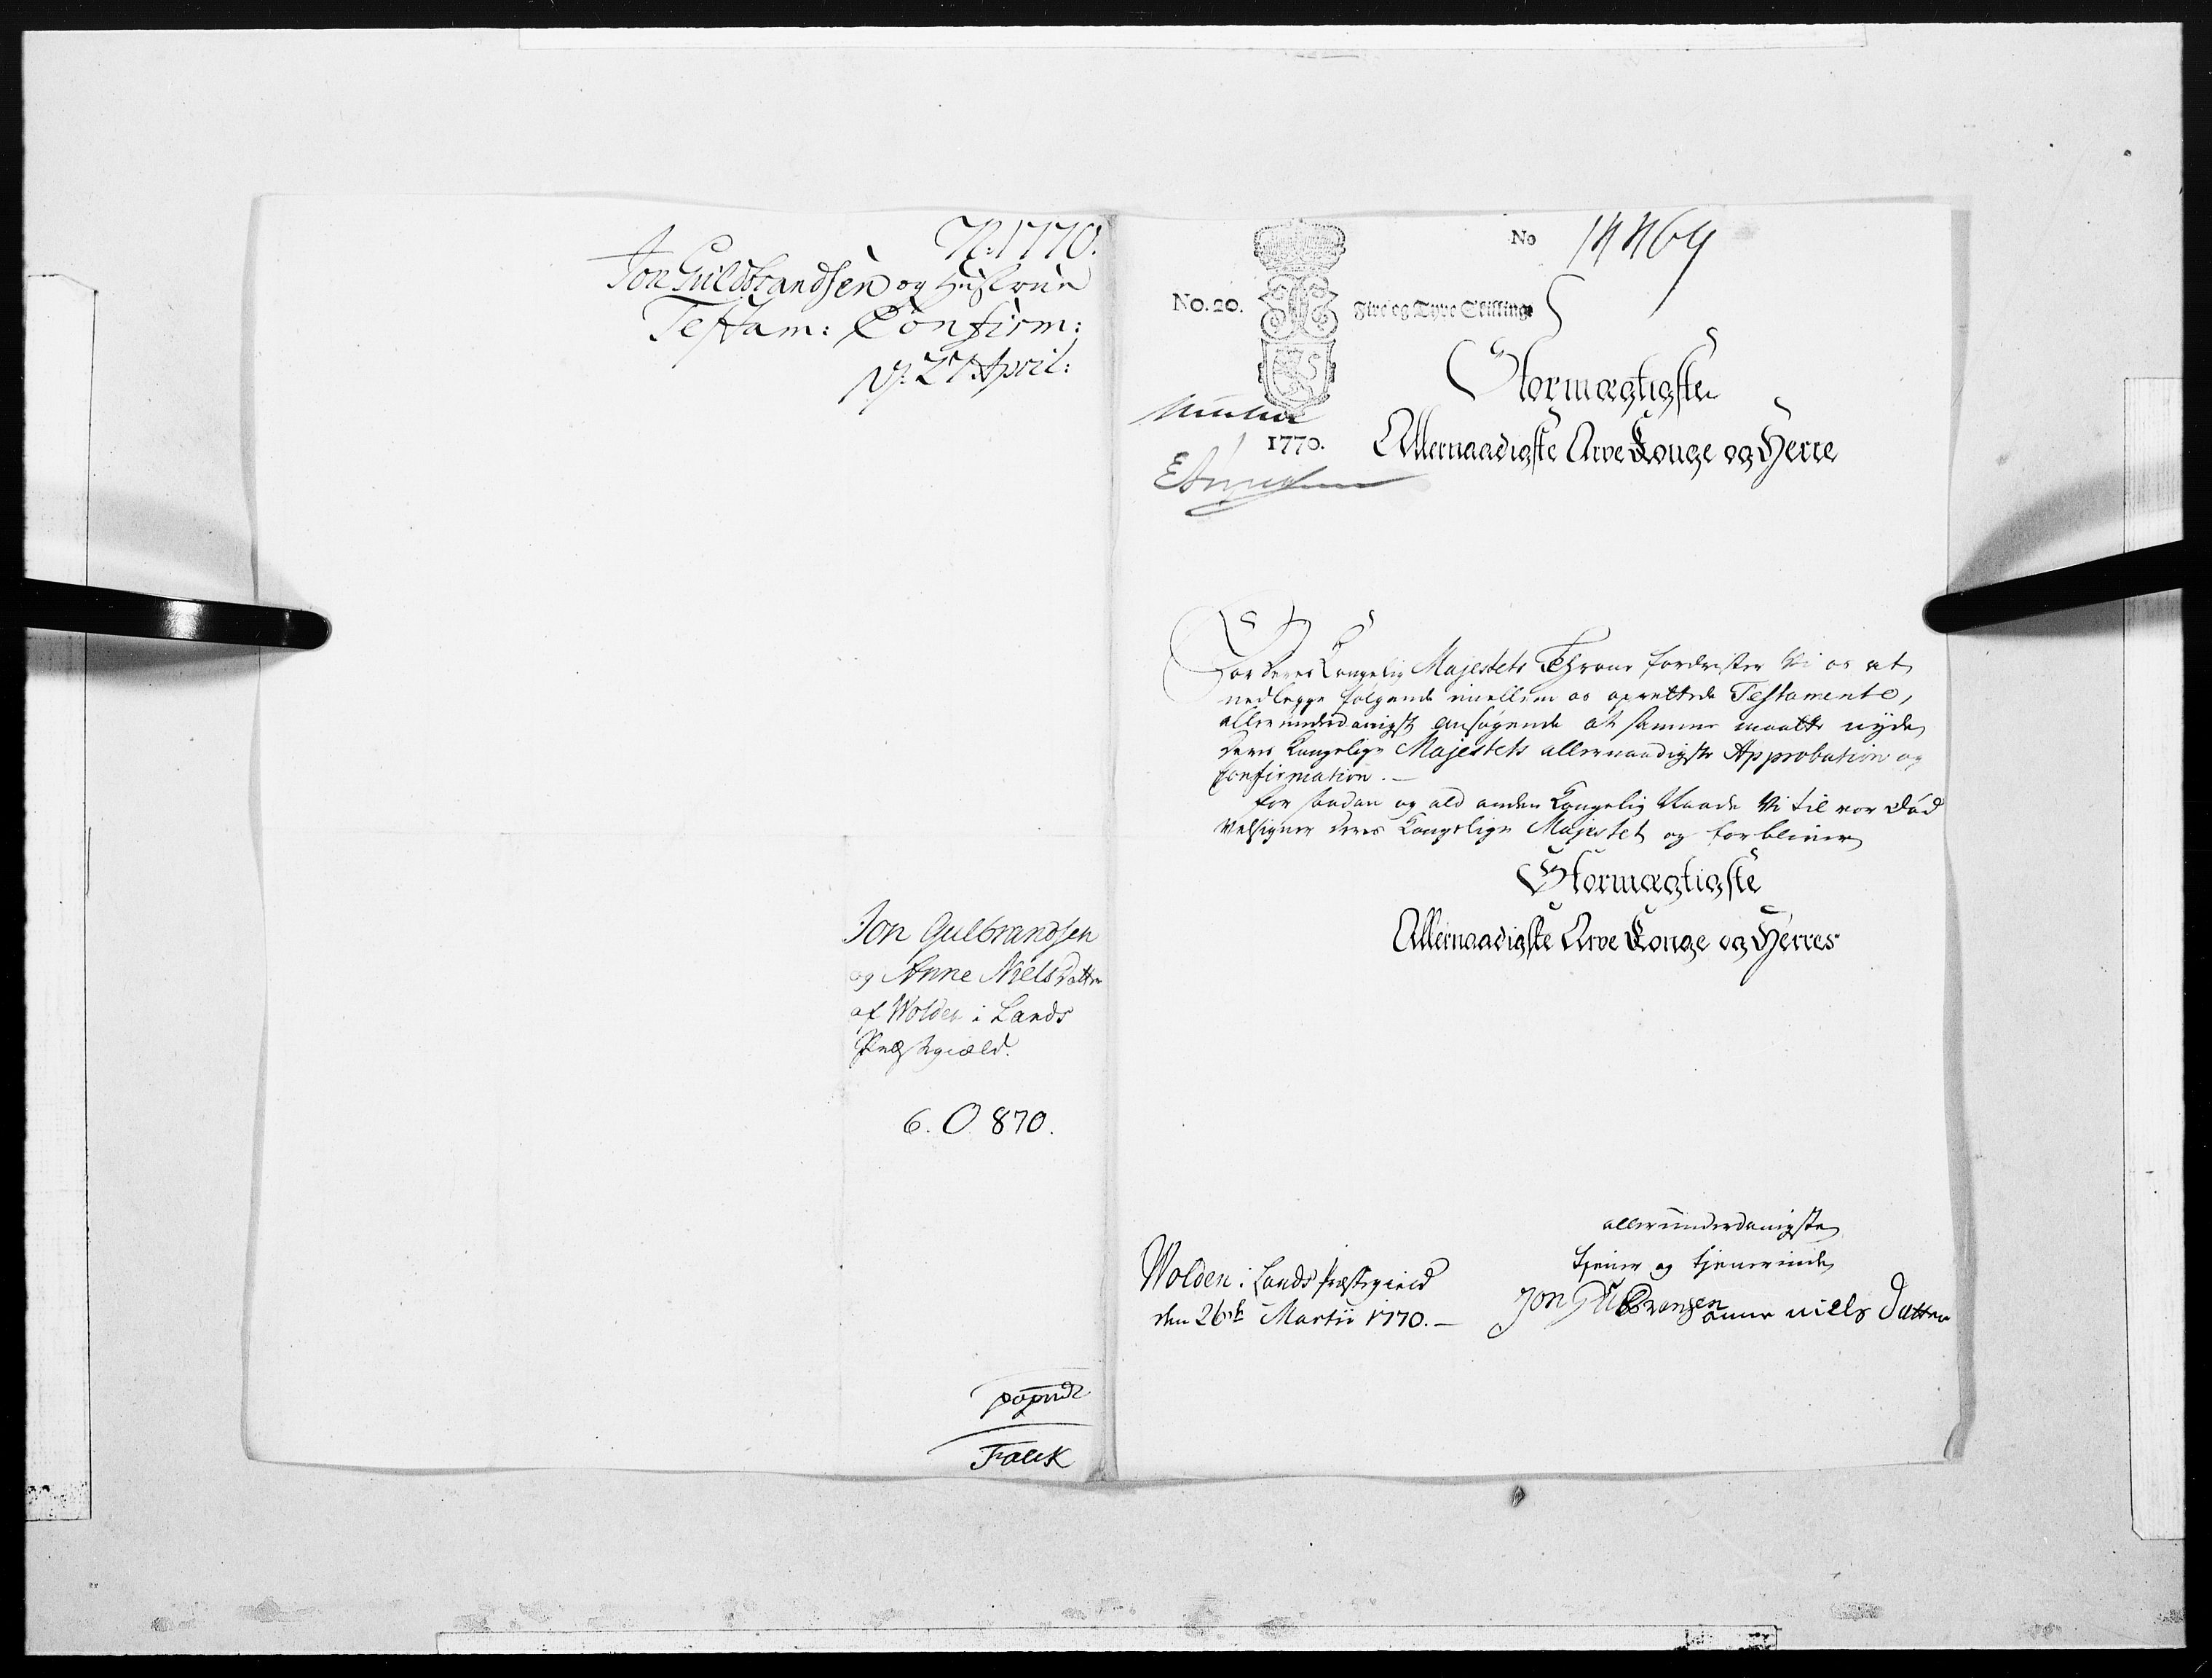 N: 1770.
Jon Guldbrandsen og Hustrue
Testam: Confirm:
d: 27 April:
Jon Gulbrandsen
og Anne Niels datter
af Wolden i Lands
Præstegiæld.
6. O. 870.
Falck
No 14464
No. 20. Fire og Tyve Skilling
1770.
Stormægtigste
Allernaadigste Arve Konge og Herre
For Deres Kongelig Majestets Throne fordrister Vi os at
nedlegge følgende imellem os oprettede Testamente,
allerunderdanigst ansøgende at samme maatte nyde
Deres Kongelige Majestets allernaadigste Approbation og
Confirmation. —
For saadan og ald anden Kongelig Naade Vi til vor Død
Velsigner Deres Kongelige Majestet og forbliver
Stormægtigste
Allernaadigste Arve Konge og Herres
allerunderdanigste
tjener og tjenerinde
Wolden i Lands Præstegield
den 26de Martii 1770. —
Jon Gulbransen anne niels Datter